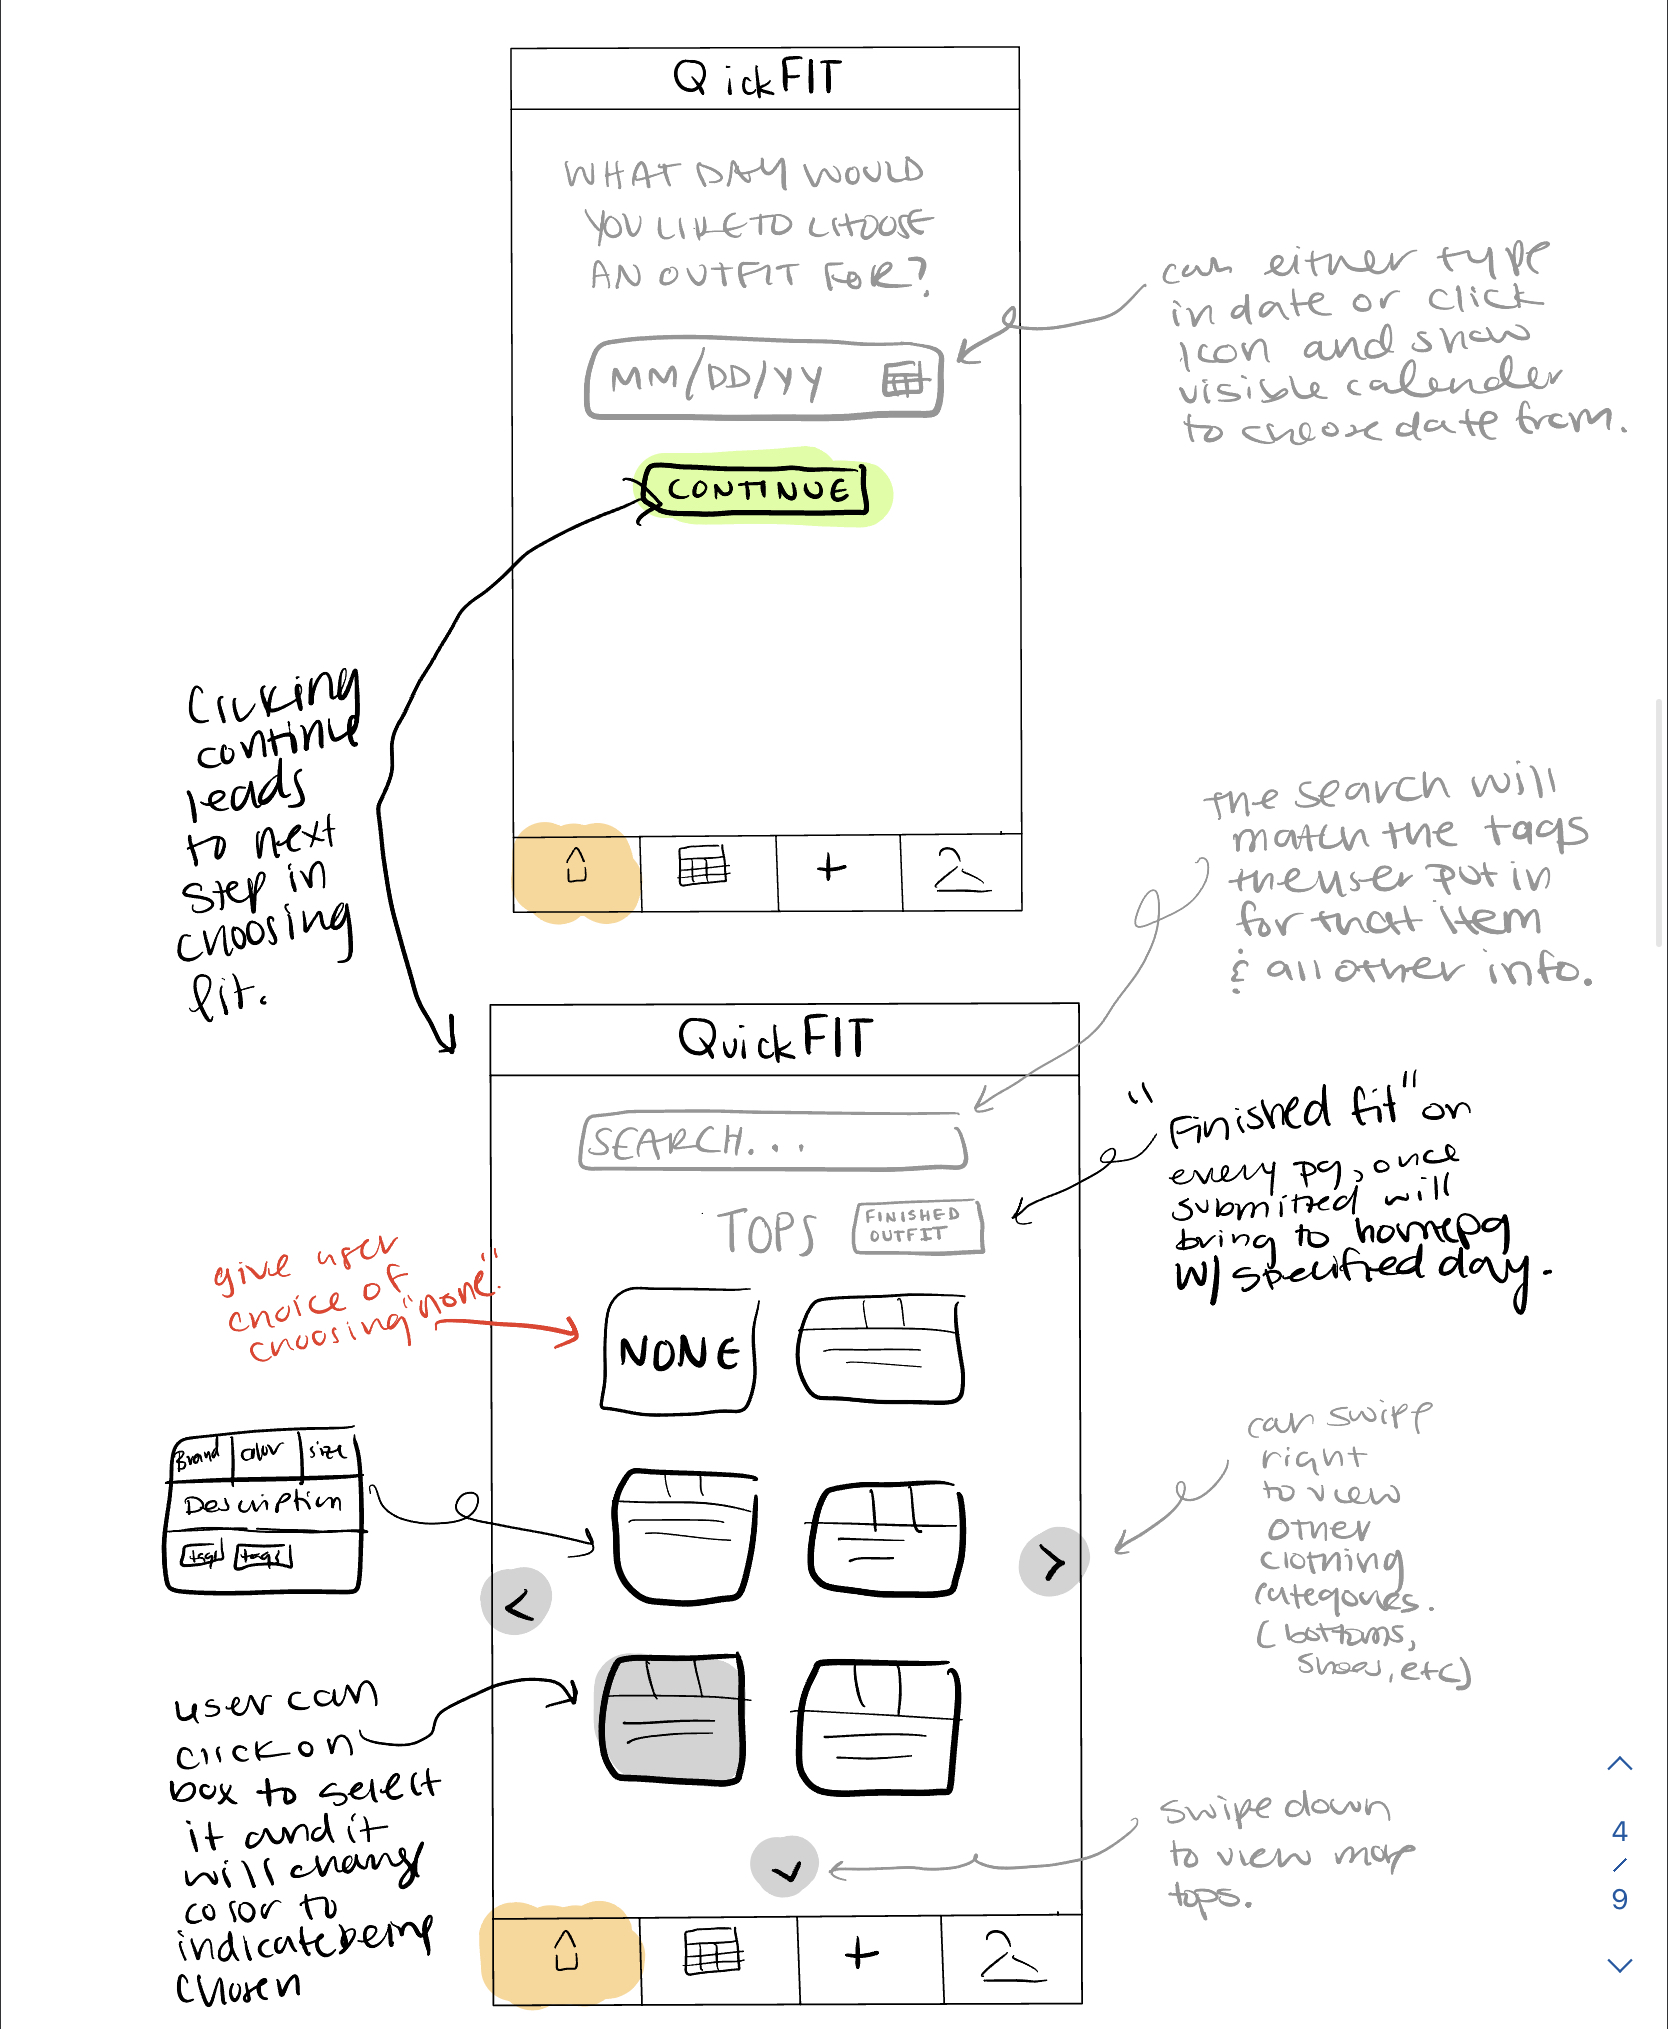 QickFIT
WHAT DAY WOULD
YOU LIKE TO CHOOSE
AN OUTFIT FOR?
MM/DD/YY
CONTINUE
can either type
in date or click
icon and show
visible calender
to choose date from.
Clicking
continue
leads
to next
step in
choosing
fit.
the search will
match the tags
the user put in
for that item
& all other info.
QuickFIT
SEARCH...
TOPS
FINISHED
OUTFIT
"Finished fit" on
every pg, once
submitted will
bring to homepg
w/ specified day.
give user
choice of
choosing "none".
NONE
Brand color size
Description
tags tags
<
>
can swipe
right
to view
other
clothing
categories.
(bottoms,
shoes, etc)
user can
click on
box to select
it and it
will change
color to
indicate being
chosen
swipe down
to view more
tops.
+
+
4
/
9